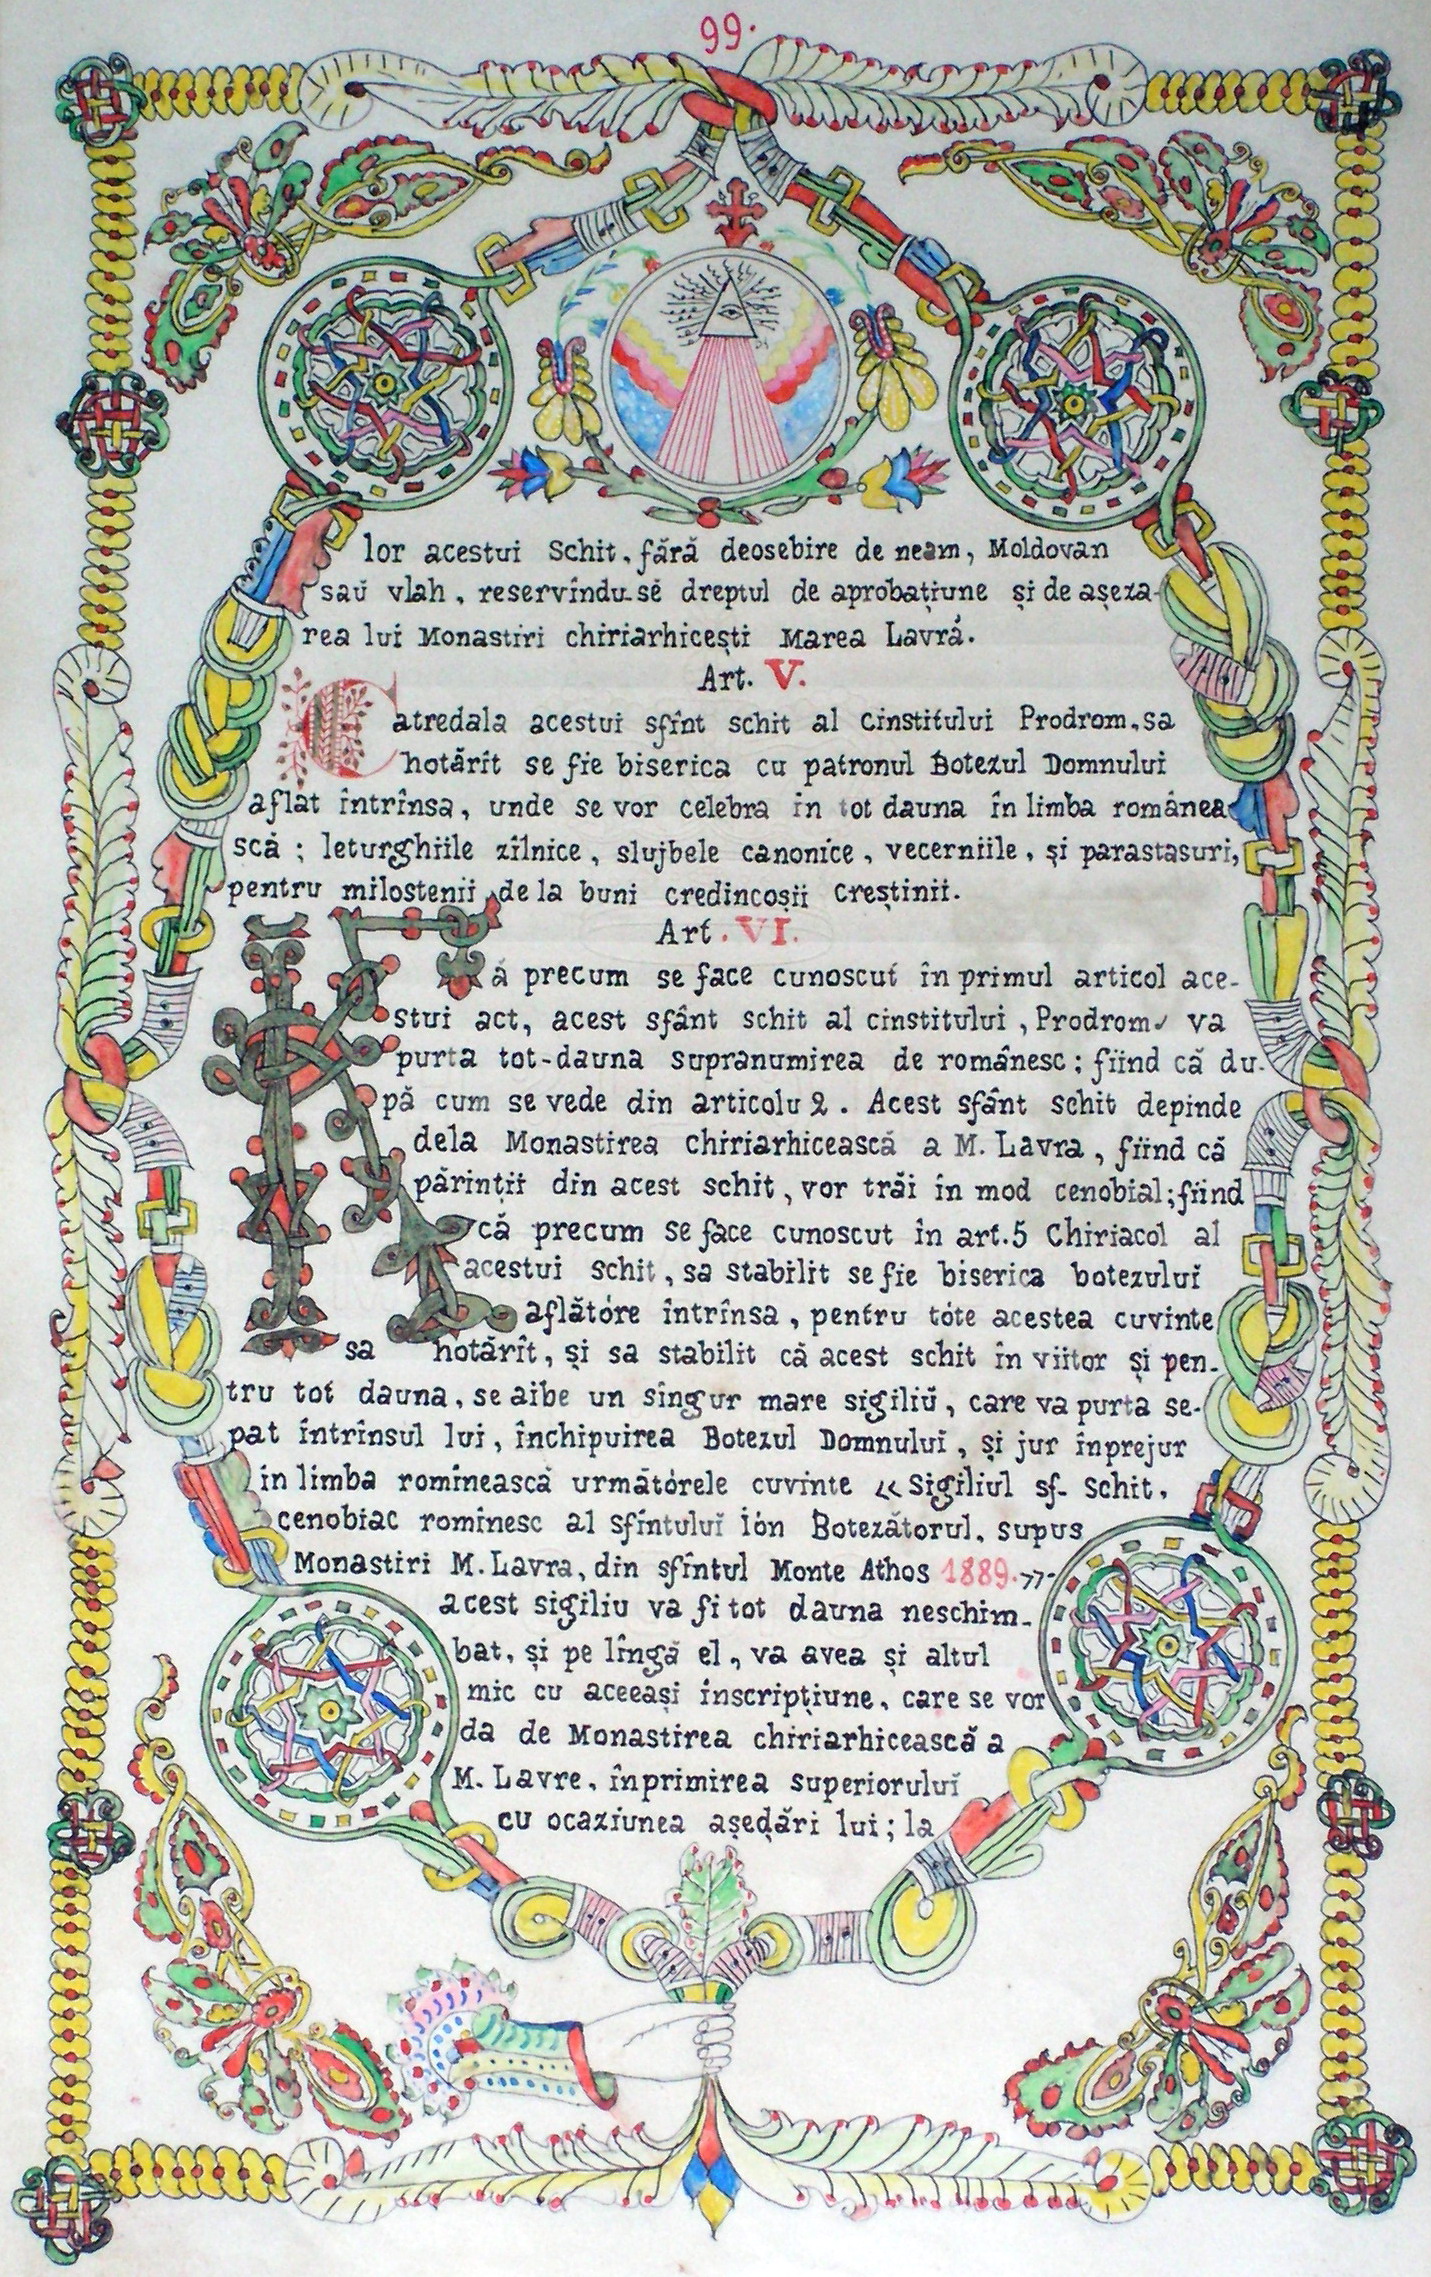 99.
lor acestui Schit, fără deosebire de neam, Moldovan
saŭ vlah, reservîndu-sé dreptul de aprobațiune și de așeza-
rea lui Monastiri chiriarhicești Marea Lavră.
Art. V.
Catredala acestui sfînt schit al Cinstitului Prodrom, sa
hotărît se fie biserica cu patronul Botezul Domnului
aflat întrînsa, unde se vor celebra în tot dauna în limba românea
scă; leturghiile zîlnice, slujbele canonice, vecerniile, și parastasuri,
pentru milostenii de la buni credincoșii Creștinii.
Art. VI.
Fă precum se face cunoscut în primul articol ace-
stui act, acest sfânt schit al cinstitului, Prodrom va
purta tot-dauna supranumirea de românesc; fiind că du-
pă cum se vede din articolu 2. Acest sfânt schit depinde
dela Monastirea chiriarhicească a M. Lavra, fiind că
părinții din acest schit, vor trăi în mod cenobial; fiind
că precum se face cunoscut în art. 5 Chiriacol al
acestui schit, sa stabilit se fie biserica botezuluĭ
aflătóre întrînsa, pentru tóte acestea cuvinte
sa hotărît, și sa stabilit că acest schit în viitor și pen-
tru tot dauna, se aibe un sîngur mare sigiliŭ, care va purta se-
pat întrînsul lui, închipuirea Botezul Domnuluĭ, și jur înprejur
in limba romînească următórele cuvinte « Sigiliul sf. Schit,
cenobiac romînesc al Sfîntuluĭ ión Botezătorul, supus
Monastiri M. Lavra, din sfîntul Monte Athos 1889. »
acest sigiliu va fi tot dauna neschim-
bat, și pe lîngă el, va avea și altul
mic cu aceeași înscripțiune, care se vor
da de Monastirea chiriarhicească a
M. Lavre, înprimirea superioruluĭ
cu ocaziunea așeḑări lui; la